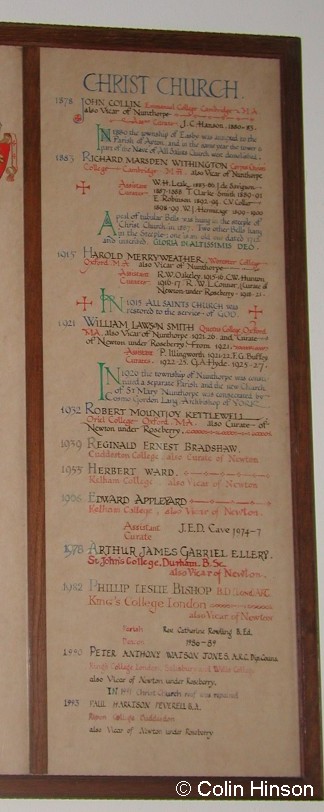 CHRIST CHURCH
1878 JOHN COLLIN. Emmanuel College Cambridge. M.A.
also Vicar of Nunthorpe
Curate J.C. Hanson. 1880-83.
In 1880 the township of Easby was annexed to the
Parish of Ayton, and in the same year the tower &
part of the Nave of All Saints Church were demolished.
1883 RICHARD MARSDEN WITHINGTON Corpus Christi
College Cambridge M.A. also Vicar of Nunthorpe
Assistant
Curates
W.H. Leak 1883-86
1887-1888 T. Clarke Smith 1889-91
E. Robinson 1892-94 C.V. Collier
1898-99 W.J. Hermitage 1899-1900
A peal of tubular Bells was hung in the steeple of
Christ Church in 1887. Two other Bells hang
in the Steeple: one is an old one dated 1713
and inscribed GLORIA IN ALTISSIMIS DEO.
1915 HAROLD MERRYWEATHER, Worcester College
Oxford. M.A. also Vicar of Nunthorpe
Assistant
Curates
R.W. Oakeley. 1915-16. C.W. Hunson,
1916-17 R.W.L. Connor (Curate of
Newton under Roseberry 1918-21.
IN 1915 ALL SAINTS CHURCH was
restored to the service of GOD.
1921 WILLIAM LAWSON SMITH Queens College Oxford
MA. also Vicar of Nunthorpe 1921-26. and Curate
of Newton under Roseberry From 1921.
Assistant
Curates
P. Illingworth 1921-22. F.G. Buffes
1922-25. G.A. Hyde. 1925-27.
In 1926 the township of Nunthorpe was consti-
tuted a separate Parish and the new Church
of St Mary Nunthorpe was consecrated by
Cosmo Gordon Lang Archbishop of YORK.
1932 ROBERT MOUNTJOY KETTLEWELL
Oriel College Oxford. MA. also Curate of
Newton under Roseberry.
1939 REGINALD ERNEST BRADSHAW.
Cuddesdon College also Curate of Newton
1955 HERBERT WARD.
Kelham College also Vicar of Newton
1966 EDWARD APPLEYARD
Kelham College, also Vicar of Newton.
Assistant
Curate
J.E.D. Cave 1974-7
1978 ARTHUR JAMES GABRIEL ELLERY.
St. John's College, Durham. B.Sc.
also Vicar of Newton.
1982 PHILLIP LESLIE BISHOP B.D.
KING'S COLLEGE LONDON
also Vicar of Newton
Parish Rev. Catherine Rowling B.Ed.
Deacon 1986-89
1990 PETER ANTHONY WATSON JONES. A.K.C.
King's College London, Salisbury and Wells College
also Vicar of Newton under Roseberry,
IN Christ Church roof was repaired
PAUL HARRISON PEVERELL B.A.
Ripon College Cuddesdon
also Vicar of Newton under Roseberry
© Colin Hinson